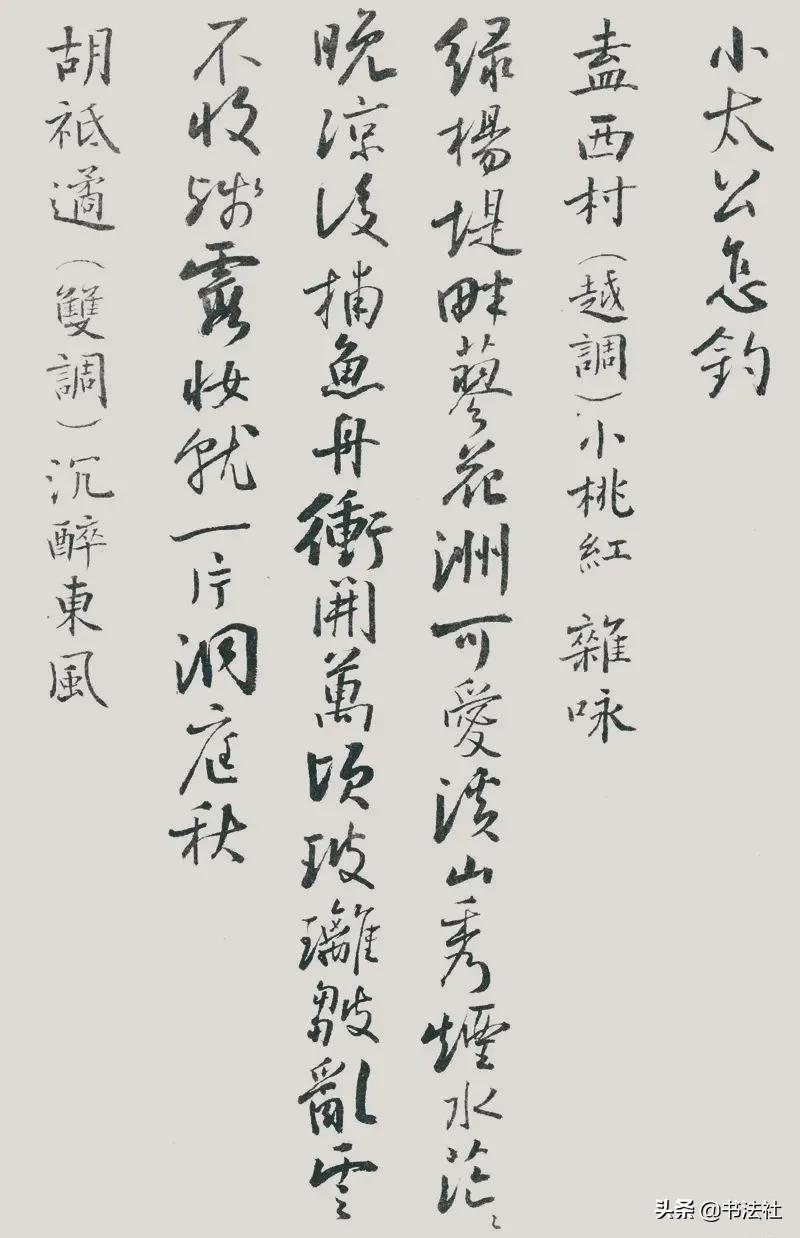 小太公怎釣
盍西村（越調）小桃紅 雜咏
绿楊堤畔蓼花洲可愛溪山秀煙水茫〻
晚涼後捕魚舟衝開萬頃玻瓈皺亂雲
不收殘霞妝就一片洞庭秋
胡祗遹（雙調）沉醉東風
头条 @书法社